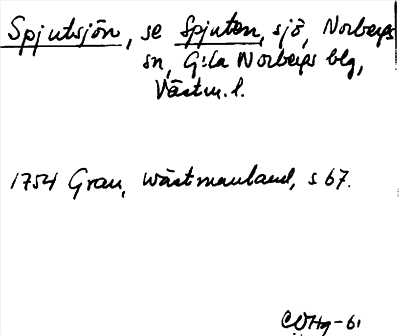 Spjutsjön, se Spjuten, sjö, Norbergs
sn, G:la Norbergs blg,
Västm. l.
1754 Grau, Wästmanland, s 67.
CWHg-61